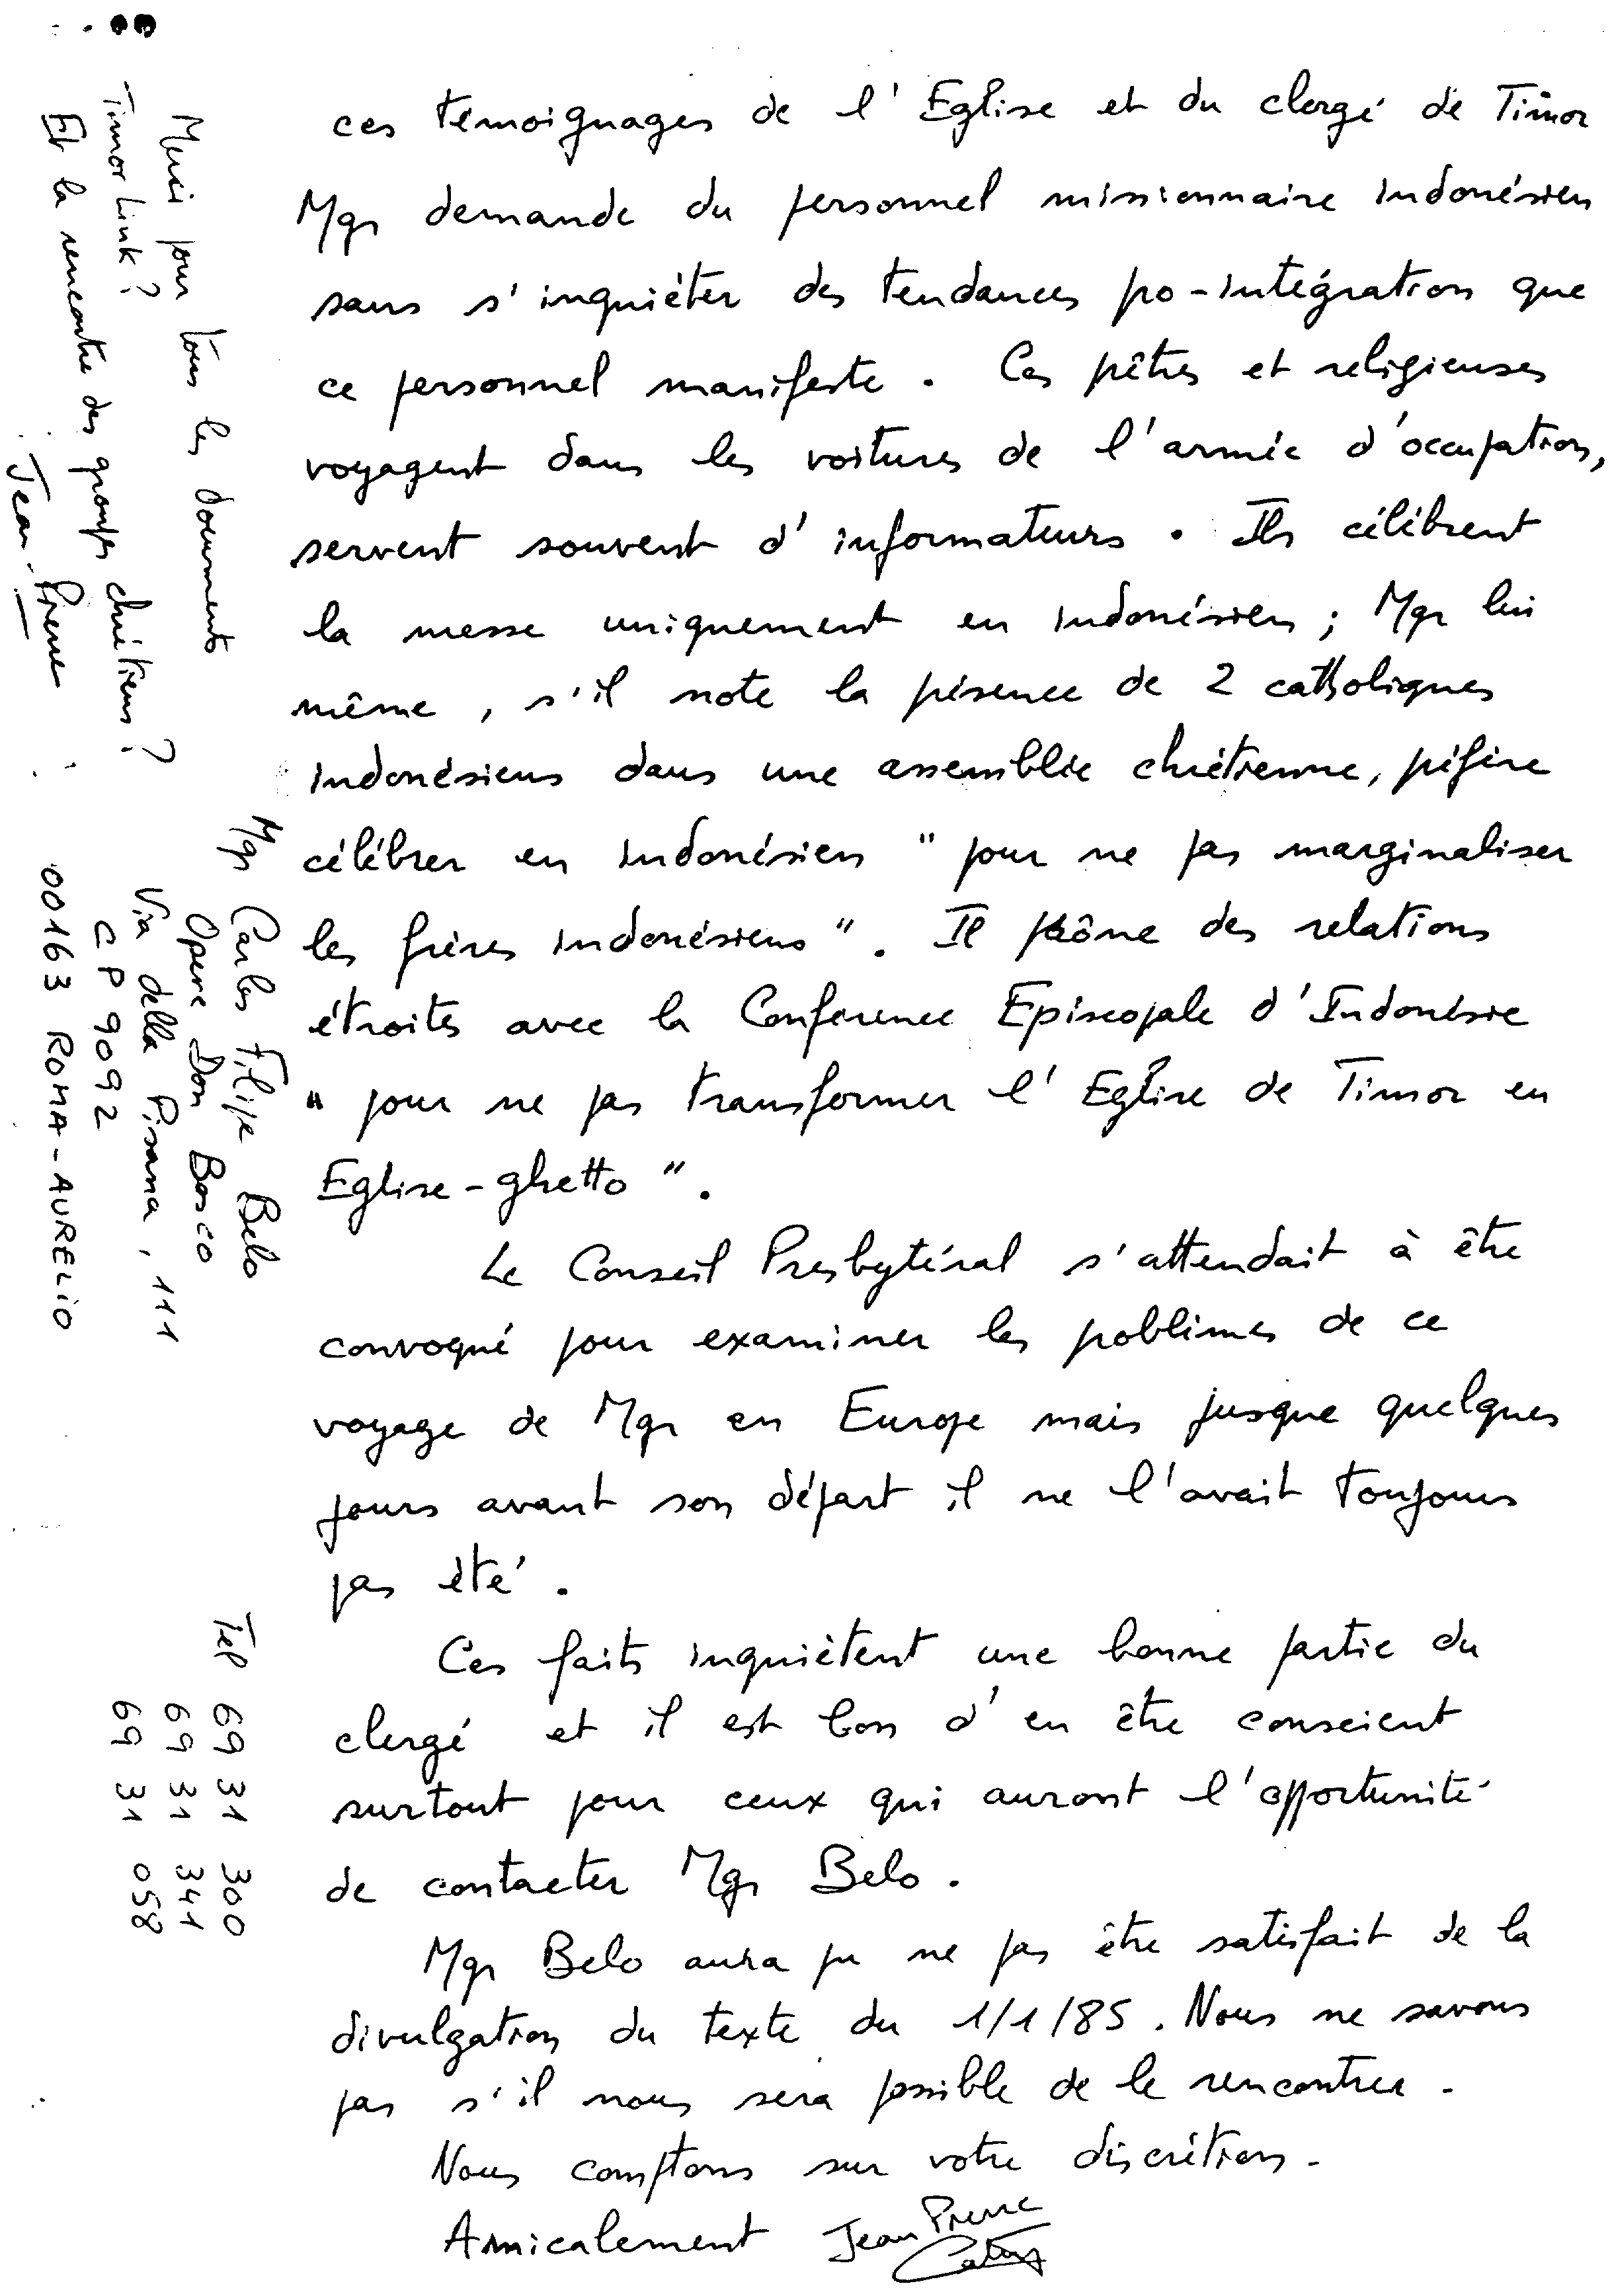 ces témoignages de l'Eglise et du clergé de Timor
Mgr demande du personnel missionnaire indonésien
sans s'inquiéter des tendances pro-intégration que
ce personnel manifeste. Ces prêtres et religieuses
voyagent dans les voitures de l'armée d'occupation,
servent souvent d'informateurs. Ils célèbrent
la messe uniquement en indonésien ; Mgr lui
même, s'il note la présence de 2 catholiques
indonésiens dans une assemblée chrétienne, préfère
célébrer en indonésien "pour ne pas marginaliser
les frères indonésiens". Il prône des relations
étroites avec la Conférence Episcopale d'Indonésie
"pour ne pas transformer l'Eglise de Timor en
Eglise-ghetto".
Le Conseil Presbytéral s'attendait à être
convoqué pour examiner les problèmes de ce
voyage de Mgr en Europe mais jusque quelques
jours avant son départ il ne l'avait toujours
pas été.
Ces faits inquiètent une bonne partie du
clergé et il est bon d'en être conscient
surtout pour ceux qui auront l'opportunité
de contacter Mgr Belo.
Mgr Belo aura pu ne pas être satisfait de la
divulgation du texte du 1/1/85. Nous ne savons
pas s'il nous sera possible de le rencontrer.
Nous comptons sur votre discrétion.
Amicalement Jean Pierre
Merci pour tous les documents
Timor Link ?
Et la rencontre des groupes chrétiens ?
Jean-Pierre
Mgr Carlos Filipe Belo
Opere Don Bosco
Via della Pisana, 111
CP 9092
00163 ROMA-AURELIO
Tép 69 31 300
69 31 341
69 31 058